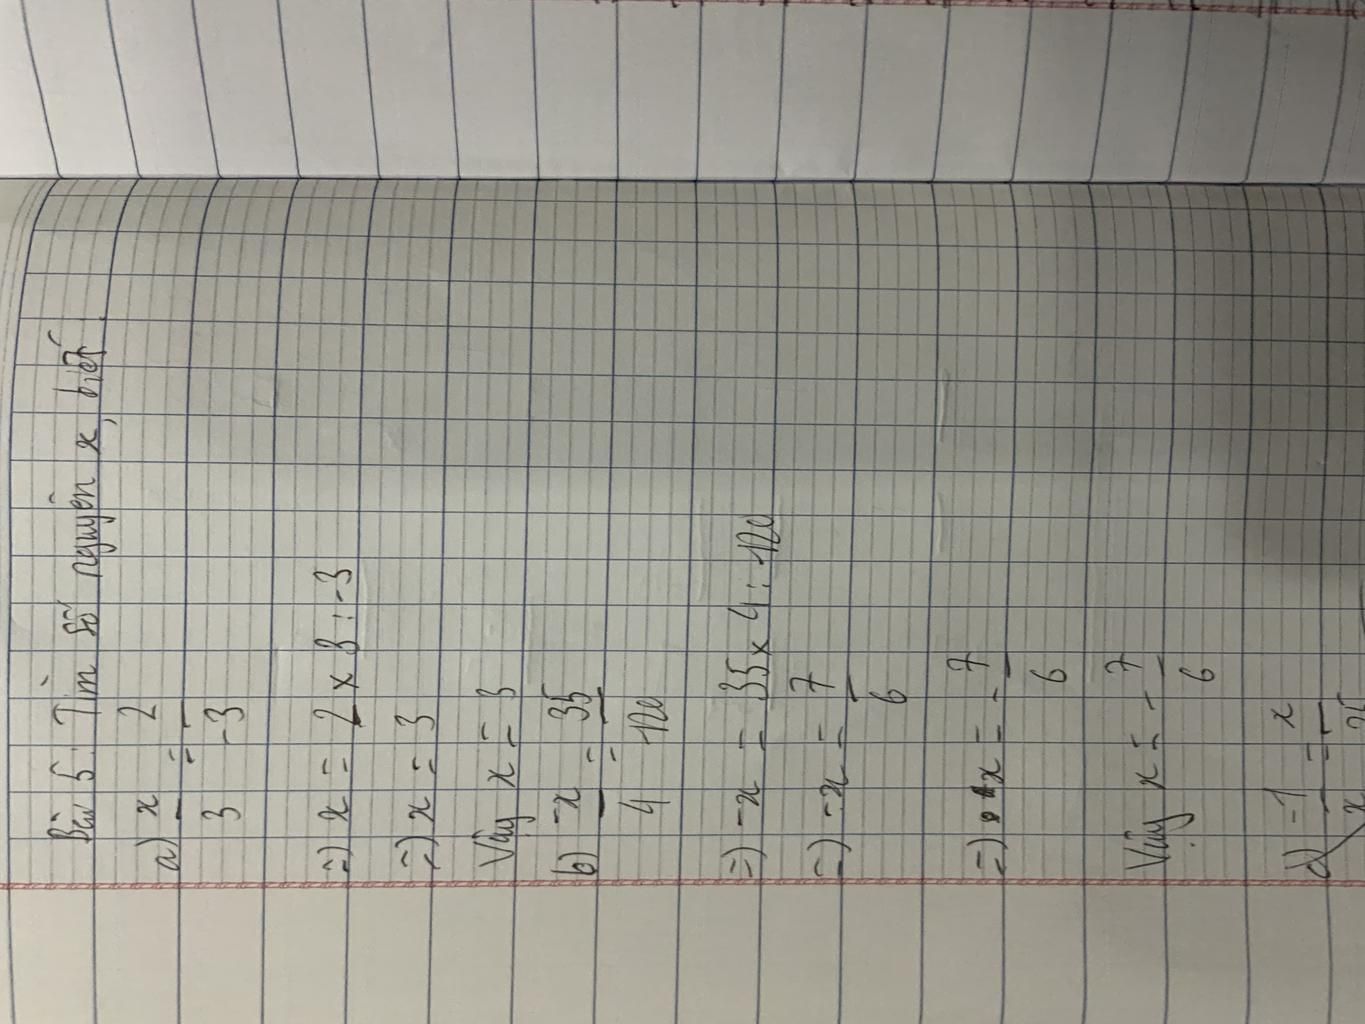 Bài 5: Tìm số nguyên x, biết
a) x/3 = 2/-3
=) x = 2 x 3 : -3
=) x = 3
Vậy x = 3
b) -x/4 = 35/120
=) -x = 35 x 4 : 120
=) -x = 7/6
=) x = -7/6
Vậy x = -7/6
-1/x = x/